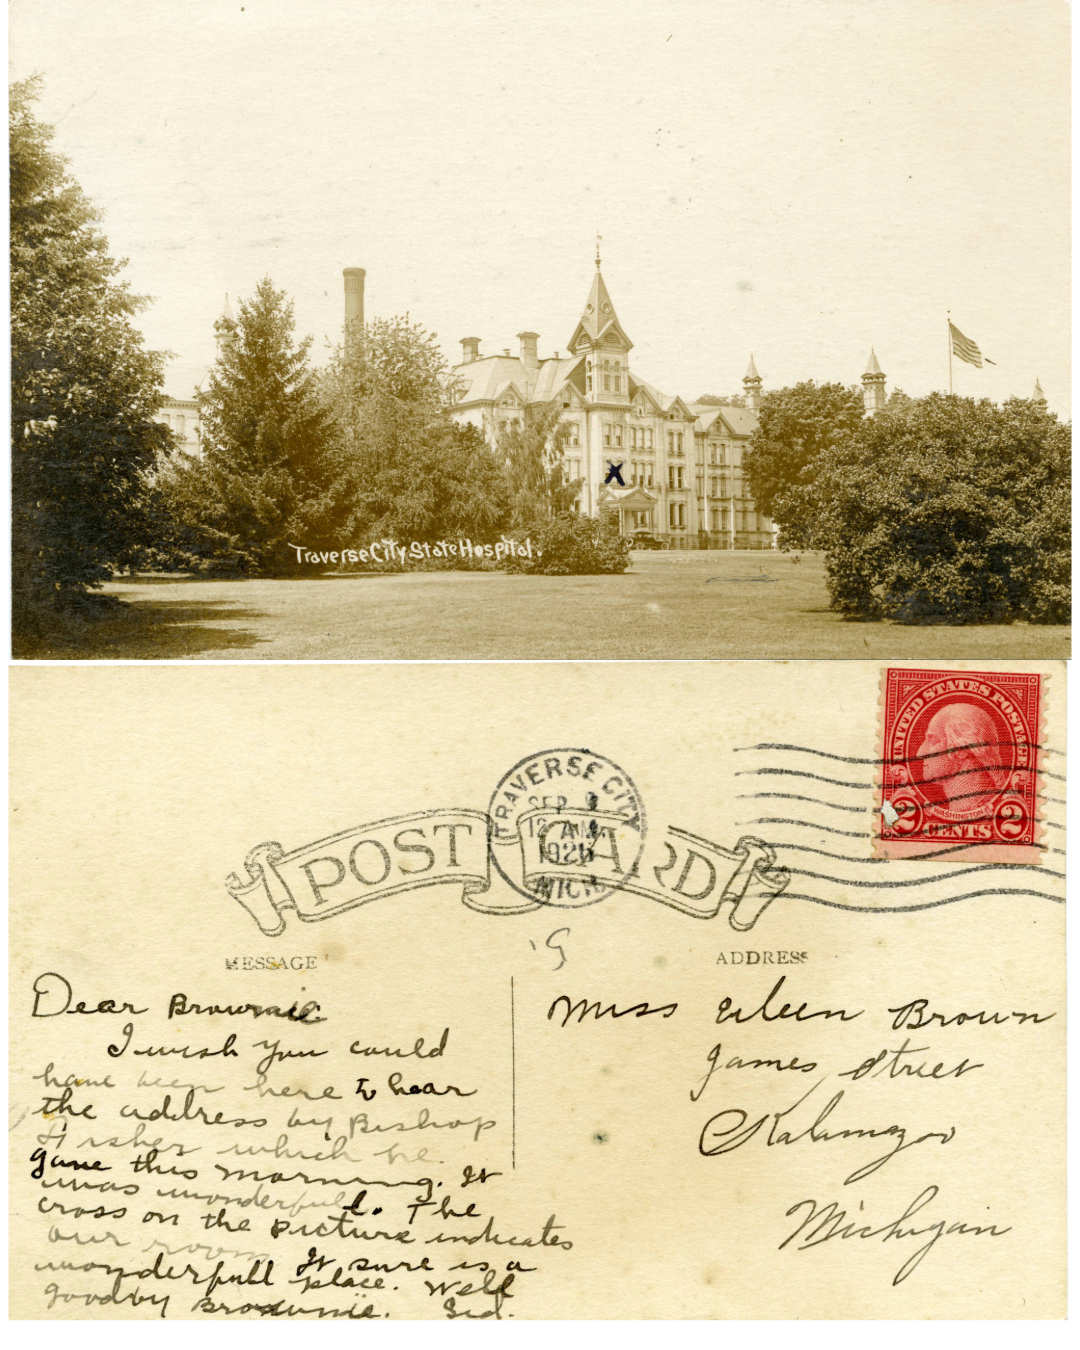 X
Traverse City State Hospital.
UNITED STATES POSTAGE
WASHINGTON
2 CENTS 2
TRAVERSE CITY
SEP
12 AM
192
MICH.
POST CARD
MESSAGE
ADDRESS
Dear Brownie.
I wish you could
have been here to hear
the address by Bishop
Fisher which he
gave this morning. It
was wonderfull. The
cross on the picture indicates
our room. It sure is a
wonderfull place. Well
goodby Brownie.
Miss Eileen Brown
James Street
Kalamazoo
Michigan